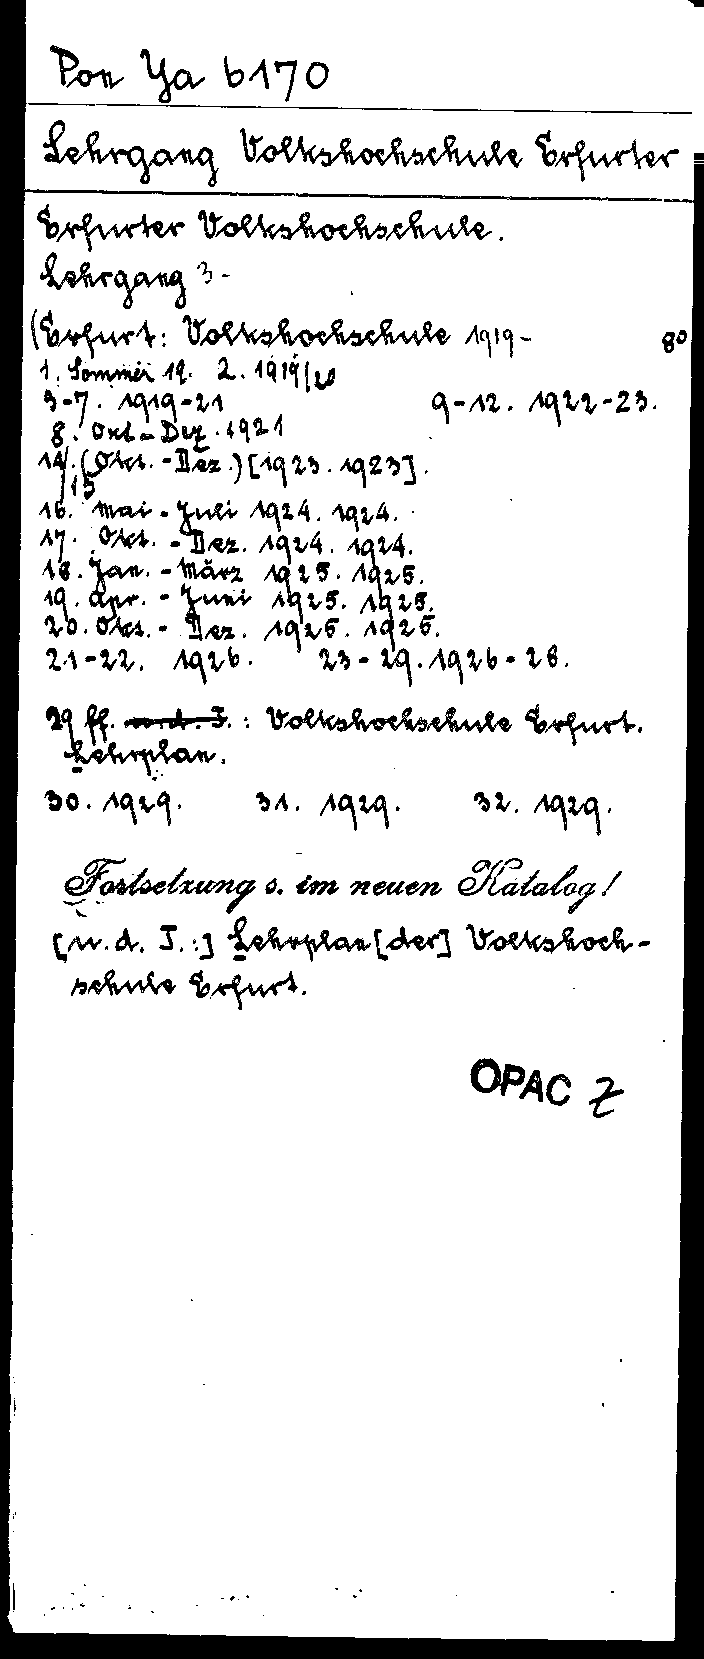 Pon Ya 6170
Lehrgang Volkshochschule Erfurter
Erfurter Volkshochschule.
Lehrgang 3-
(Erfurt: Volkshochschule 1919- 8°
1. Sommer 19. 2. 1919/20
3-7. 1919-21 9-12. 1922-23.
8. Okt-Dez. 1921
14/15 (Okt.-Dez.) [1923. 1923].
16. Mai-Juli 1924. 1924.
17. Okt.-Dez. 1924. 1924.
18. Jan.-März 1925. 1925.
19. Apr.-Juni 1925. 1925.
20. Okt.-Dez. 1925. 1925.
21-22. 1926. 23-29. 1926-28.
29 ff. u. d. T.: Volkshochschule Erfurt.
Lehrplan.
30. 1929. 31. 1929. 32. 1929.
Fortsetzung s. im neuen Katalog!
[u. d. T.:] Lehrplan [der] Volkshoch-
schule Erfurt.
OPAC Z